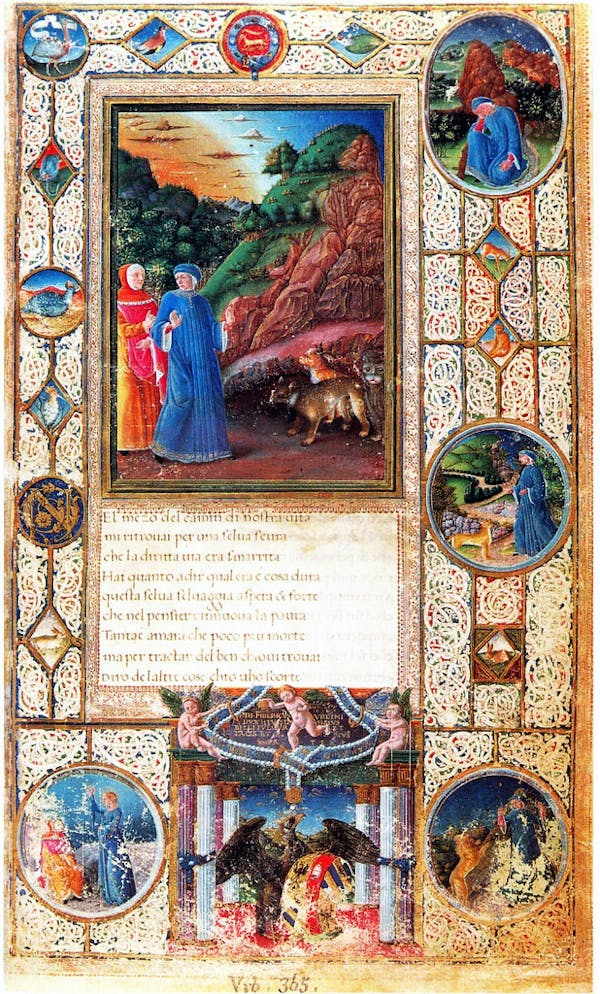 N
El mezo del camin di nostra uita
mi ritrouai per una selua scura
che la diritta uia era smarrita
Hai quanto adir qual era e cosa dura
questa selua seluaggia aspera & forte
che nel pensier rinnuoua la paura
Tantae amara che poco piu morte
ma per tractar del ben chio ui trouai
Diro de laltre cose chio uho scorte
VRBINI
Vrb. 365.